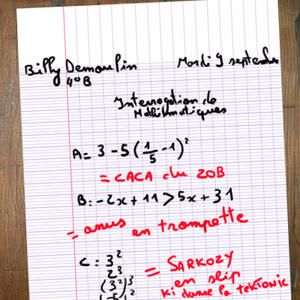 Billy Demoulin
Mardi 9 septembre
4°B
Interrogation de
Mathématiques
A = 3 - 5 (1/5 - 1)²
= CACA du ZOB
B: -2x + 11 > 5x + 31
= anus en trompette
C = 3²
2³
(3²)³
= SARKOZY
en slip
ki danse la tektonic